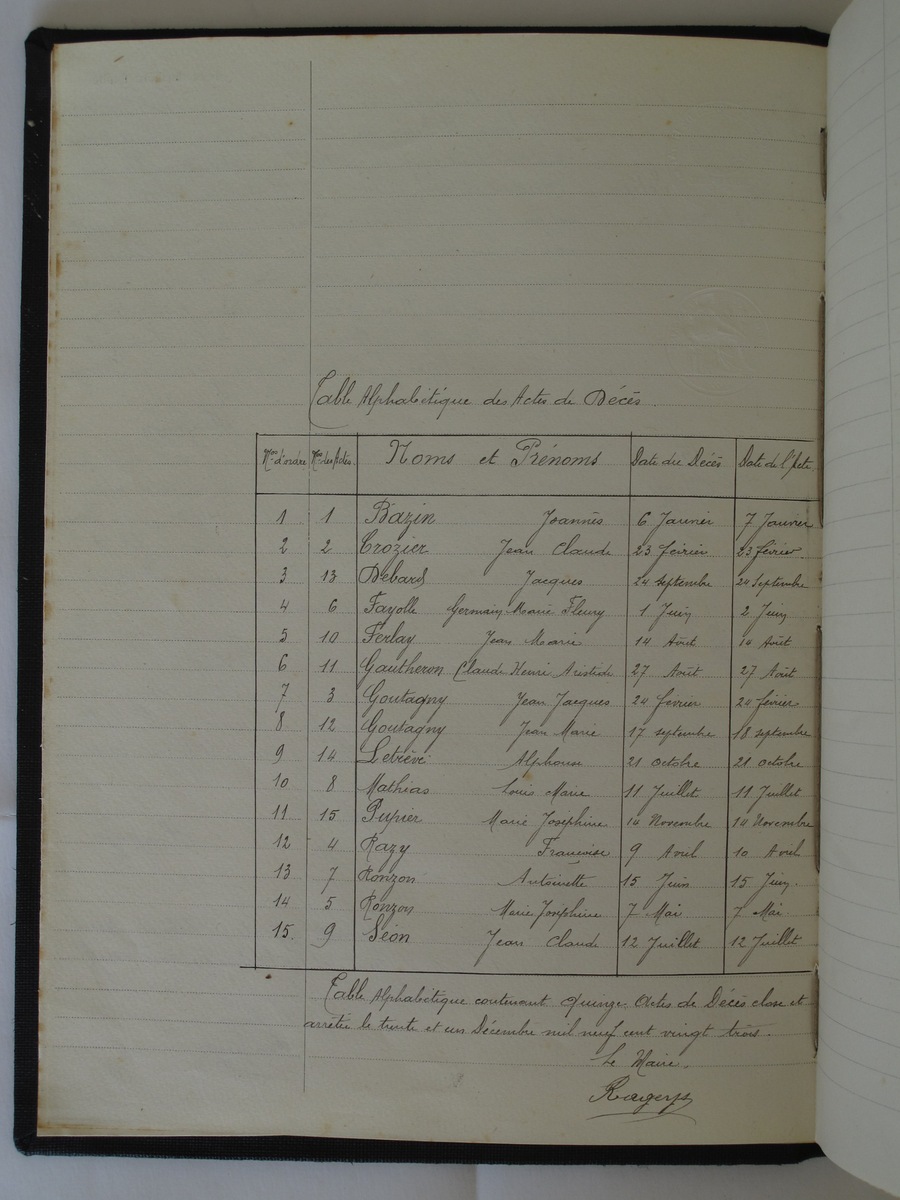 Table Alphabétique des Actes de Décès.
Nos d'ordre Nos des Actes Noms et Prénoms Date du Décès Date de l'Acte
1 1 Bazin Joannès 6 Janvier 7 Janvier
2 2 Crozier Jean Claude 23 février 23 février
3 13 Debard Jacques 24 septembre 24 Septembre
4 6 Fayolle Germain Marie Fleury 1 Juin 2 Juin
5 10 Ferlay Jean Marie 14 Août 14 Août
6 11 Gautheron Claude Henri Aristide 27 Août 27 Août
7 3 Goutagny Jean Jacques 24 fevrier 24 février
8 12 Goutagny Jean Marie 17 septembre 18 septembre
9 14 Letiévé Alphonse 21 octobre 21 octobre
10 8 Mathias Louis Marie 11 Juillet 11 Juillet
11 15 Pupier Marie Joséphine 14 Novembre 14 Novembre
12 4 Razy Françoise 9 Avril 10 Avril
13 7 Ronzon Antoinette 15 Juin 15 Juin.
14 5 Ronzon Marie Joséphine 7 Mai 7 Mai
15 9 Séon Jean Claude 12 Juillet 12 Juillet
Table Alphabétique contenant quinze Actes de Décès close et
arrêtée le trente et un Décembre mil neuf cent vingt trois.
Le Maire.